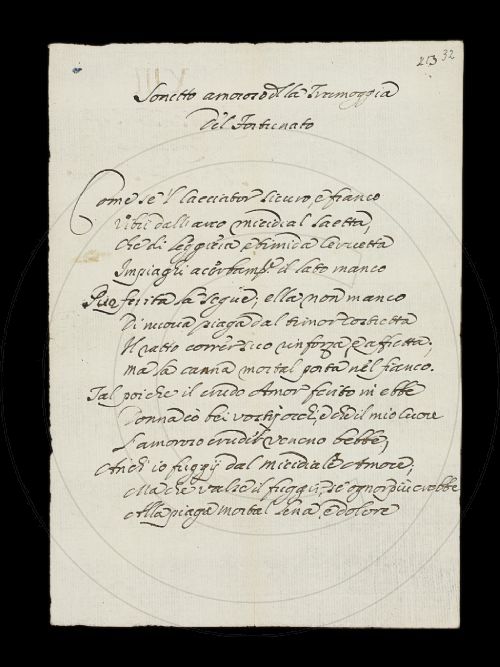 213 32
Sonetto amoroso della Tramoggia
Del Fortunato
Come se 'l cacciator sicuro, e franco
Vibri dall'arco micidial saetta,
Che di leggiera e timida cervietta
Impiaghi acerbam.te il lato manco
Pur ferita la segue, ella non manco
Di nuova piaga dal timor costretta
Il ratto correr suo rinforza, e affretta,
Ma la canna mortal porta nel fianco.
Tal poiche il crudo Amor ferito m'ebbe
Donna cò bei vostri occhi, e che il mio cuore
L'amoroso crudel veneno bebbe,
Anch'io fuggij dal micidiale Amore,
Ma che valse il fuggir, se ognor più crebbe
Alla piaga mortal lena, e dolore